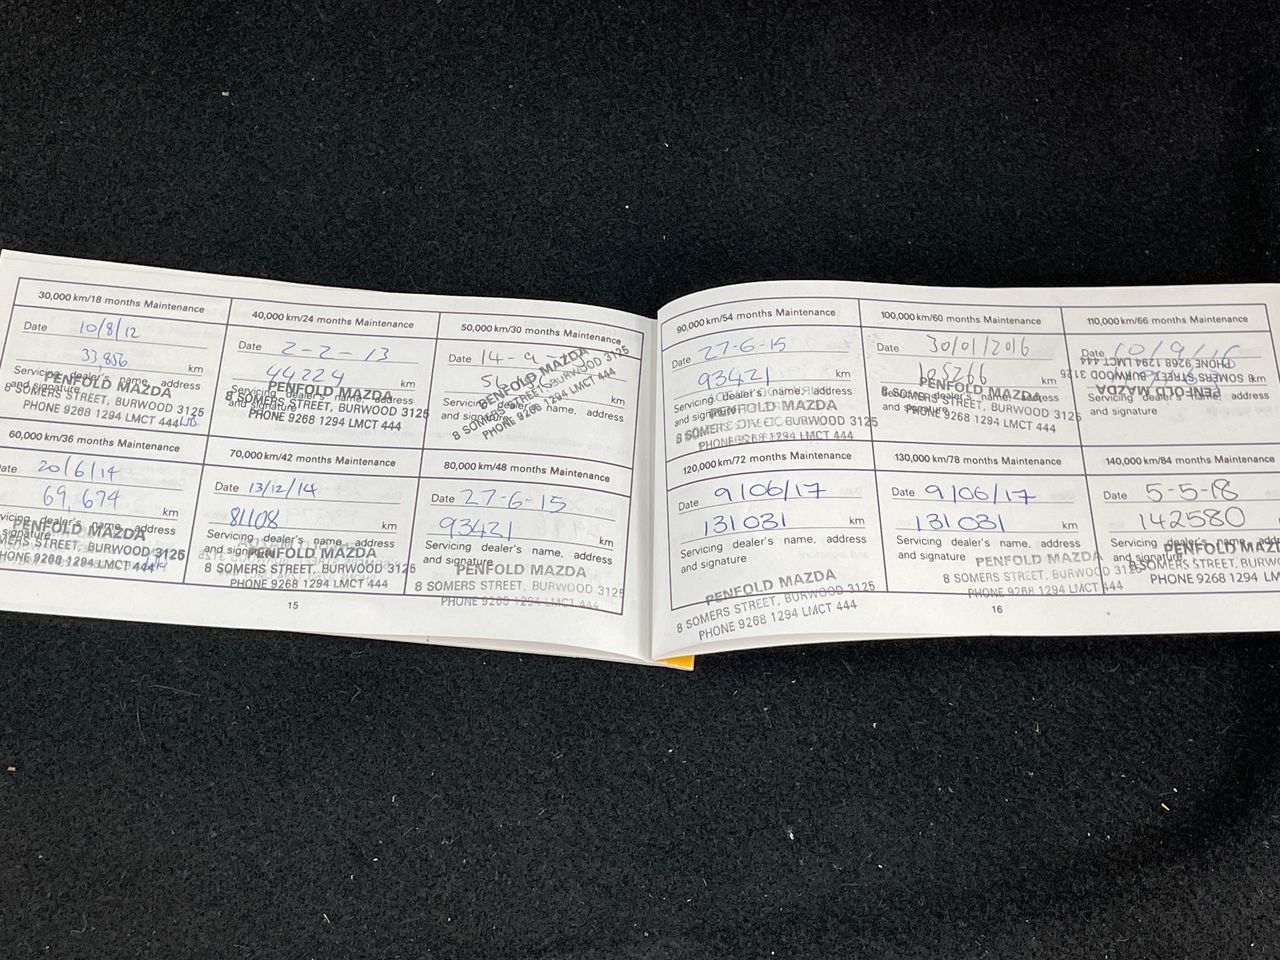 30,000 km/18 months Maintenance
Date 10/8/12
33,856 km
Servicing dealer's name, address
and signature
PENFOLD MAZDA
8 SOMERS STREET, BURWOOD 3125
PHONE 9268 1294 LMCT 444
40,000 km/24 months Maintenance
Date 2-2-13
44224 km
Servicing dealer's name, address
and signature
PENFOLD MAZDA
8 SOMERS STREET, BURWOOD 3125
PHONE 9268 1294 LMCT 444
50,000 km/30 months Maintenance
Date 14-9-
km
Servicing dealer's name, address
and signature
PENFOLD MAZDA
8 SOMERS STREET, BURWOOD 3125
PHONE 9268 1294 LMCT 444
60,000 km/36 months Maintenance
Date 20/6/14
69,674 km
Servicing dealer's name, address
signature
PENFOLD MAZDA
SOMERS STREET, BURWOOD 3125
PHONE 9268 1294 LMCT 444
70,000 km/42 months Maintenance
Date 13/12/14
81108 km
Servicing dealer's name, address
and signature
PENFOLD MAZDA
8 SOMERS STREET, BURWOOD 3125
PHONE 9268 1294 LMCT 444
80,000 km/48 months Maintenance
Date 27-6-15
93421 km
Servicing dealer's name, address
and signature
PENFOLD MAZDA
8 SOMERS STREET, BURWOOD 3125
PHONE 9268 1294 LMCT 444
15
90,000 km/54 months Maintenance
Date 27-6-15
93421 km
Servicing dealer's name, address
and signature
PENFOLD MAZDA
8 SOMERS STREET, BURWOOD 3125
PHONE 9268 1294 LMCT 444
100,000 km/60 months Maintenance
Date 30/01/2016
105266 km
Servicing dealer's name, address
and signature
PENFOLD MAZDA
8 SOMERS STREET, BURWOOD 3125
PHONE 9268 1294 LMCT 444
110,000 km/66 months Maintenance
Date 10/9/16
km
Servicing dealer's name, address
and signature
PENFOLD MAZDA
8 SOMERS STREET, BURWOOD 3125
PHONE 9268 1294 LMCT 444
120,000 km/72 months Maintenance
Date 9/06/17
131031 km
Servicing dealer's name, address
and signature
PENFOLD MAZDA
8 SOMERS STREET, BURWOOD 3125
PHONE 9268 1294 LMCT 444
130,000 km/78 months Maintenance
Date 9/06/17
131031 km
Servicing dealer's name, address
and signature
PENFOLD MAZDA
8 SOMERS STREET, BURWOOD 3125
PHONE 9268 1294 LMCT 444
140,000 km/84 months Maintenance
Date 5-5-18
142580
Servicing dealer's name,
and signature
PENFOLD
8 SOMERS STREET,
PHONE 9268 1294
16